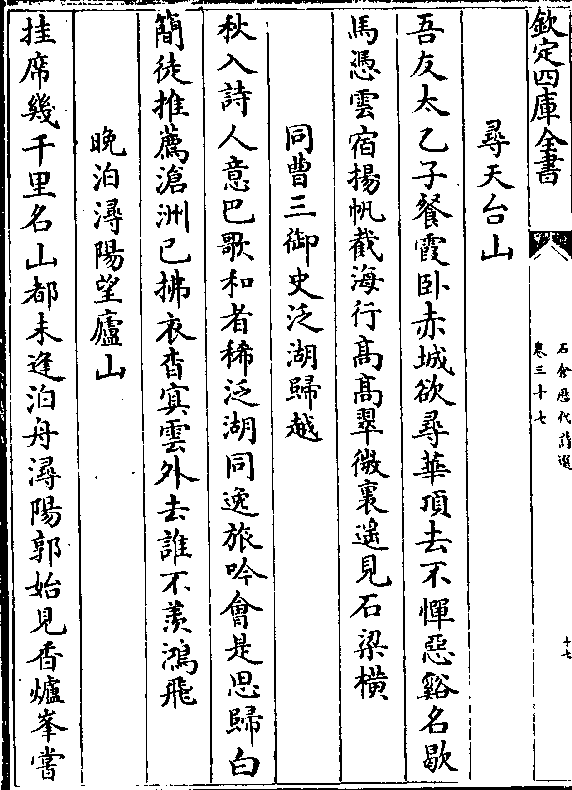 欽定四庫全書
石倉歷代詩選
卷三十七
十七
尋天台山
吾友太乙子餐霞卧赤城欲尋華頂去不憚惡谿名歇
馬憑雲宿揚帆截海行髙髙翠微裏遙見石梁橫
同曹三御史泛湖歸越
秋入詩人意巴歌和者稀泛湖同逸旅吟會是思歸白
簡徒推薦滄洲已拂衣杳冥雲外去誰不羨鴻飛
晚泊潯陽望廬山
挂席幾千里名山都未逢泊舟潯陽郭始見香爐峯嘗